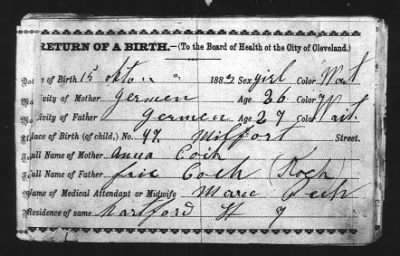 RETURN OF A BIRTH.—(To the Board of Health of the City of Cleveland.)
of Birth 15 1882 Sex girl Color
ivity of Mother Germen Age 26 Color
ivity of Father Germen Age 27 Color
lace of Birth (of child,) No. 47. Milfort Street.
ull Name of Mother Anna Coch
ull Name of Father Coch (Koch)
ame of Medical Attendant or Midwife Marie
Residence of same Hartford St 7